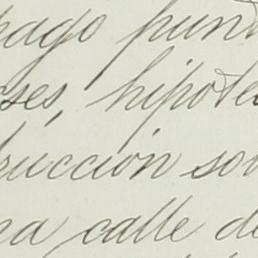 pago punt
ses, hipote
rucción so
na calle de